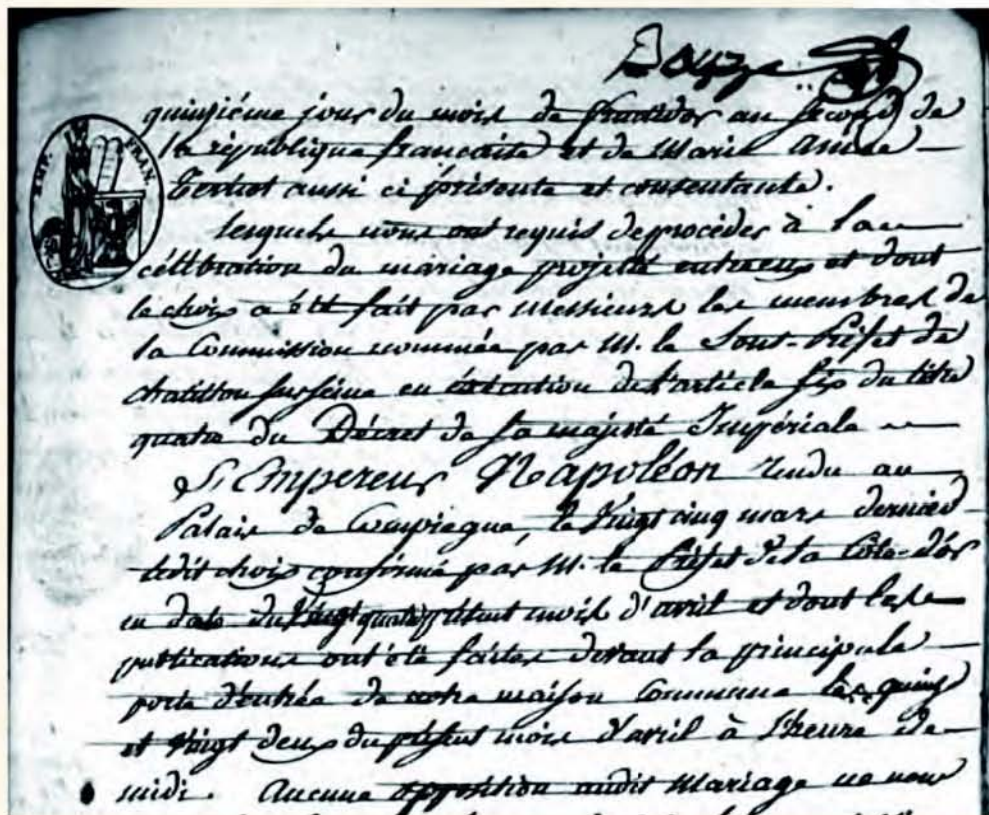 quinzième jour du mois de fructidor an second de
la république française et de Marie Anne
aussi ci présente et consentante.
lesquels nous ont requis de procéder à la
célébration du mariage projetté entr'eux et dont
le choix a été fait par Messieurs les membres de
la Commission nommée par M. le Sous-Préfet de
chatillon sur seine en éxécution de l'article six du titre
quatre du Décret de sa majesté Impériale
L'Empereur Napoléon rendu au
Palais de Compiegne, le vingt cinq mars dernier
ledit choix confirmé par M. le Préfet de la Côte-d'or
en date du vingt quatre présent mois d'avril et dont les
publications ont été faites devant la principale
porte d'entrée de notre maison Commune les quinze
et vingt deux du présent mois d'avril à l'heure de
midi. Aucune opposition audit mariage ne nous
EMP. FRAN.